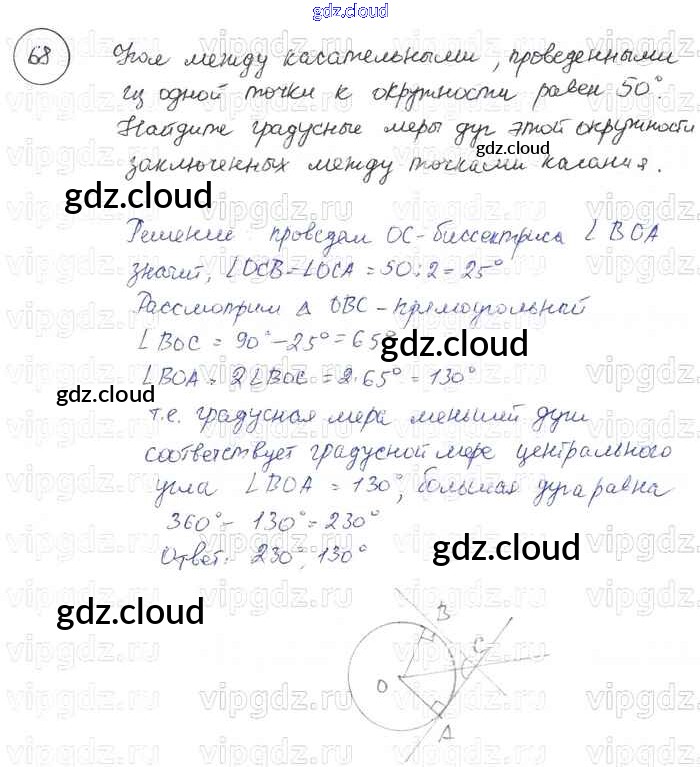 gdz.cloud
68 Угол между касательными, проведенными
из одной точки к окружности равен 50°.
Найдите градусные меры дуг этой окружности
gdz.cloud
заключенных между точками касания.
gdz.cloud
Решение проведем OC-биссектриса ∠BOA
значит, ∠OCB=∠OCA=50:2=25°
Рассмотрим Δ OBC-прямоугольный
∠BOC = 90°-25°=65°
gdz.cloud
∠BOA = 2∠BOC=2·65°=130°
gdz.cloud
т.е. градусная мера меньшей дуги
соответствует градусной мере центрального
угла ∠BOA = 130°, большая дуга равна
360°-130°=230°
Ответ: 230°, 130°
gdz.cloud
gdz.cloud
B
C
O
A
vipgdz.ru